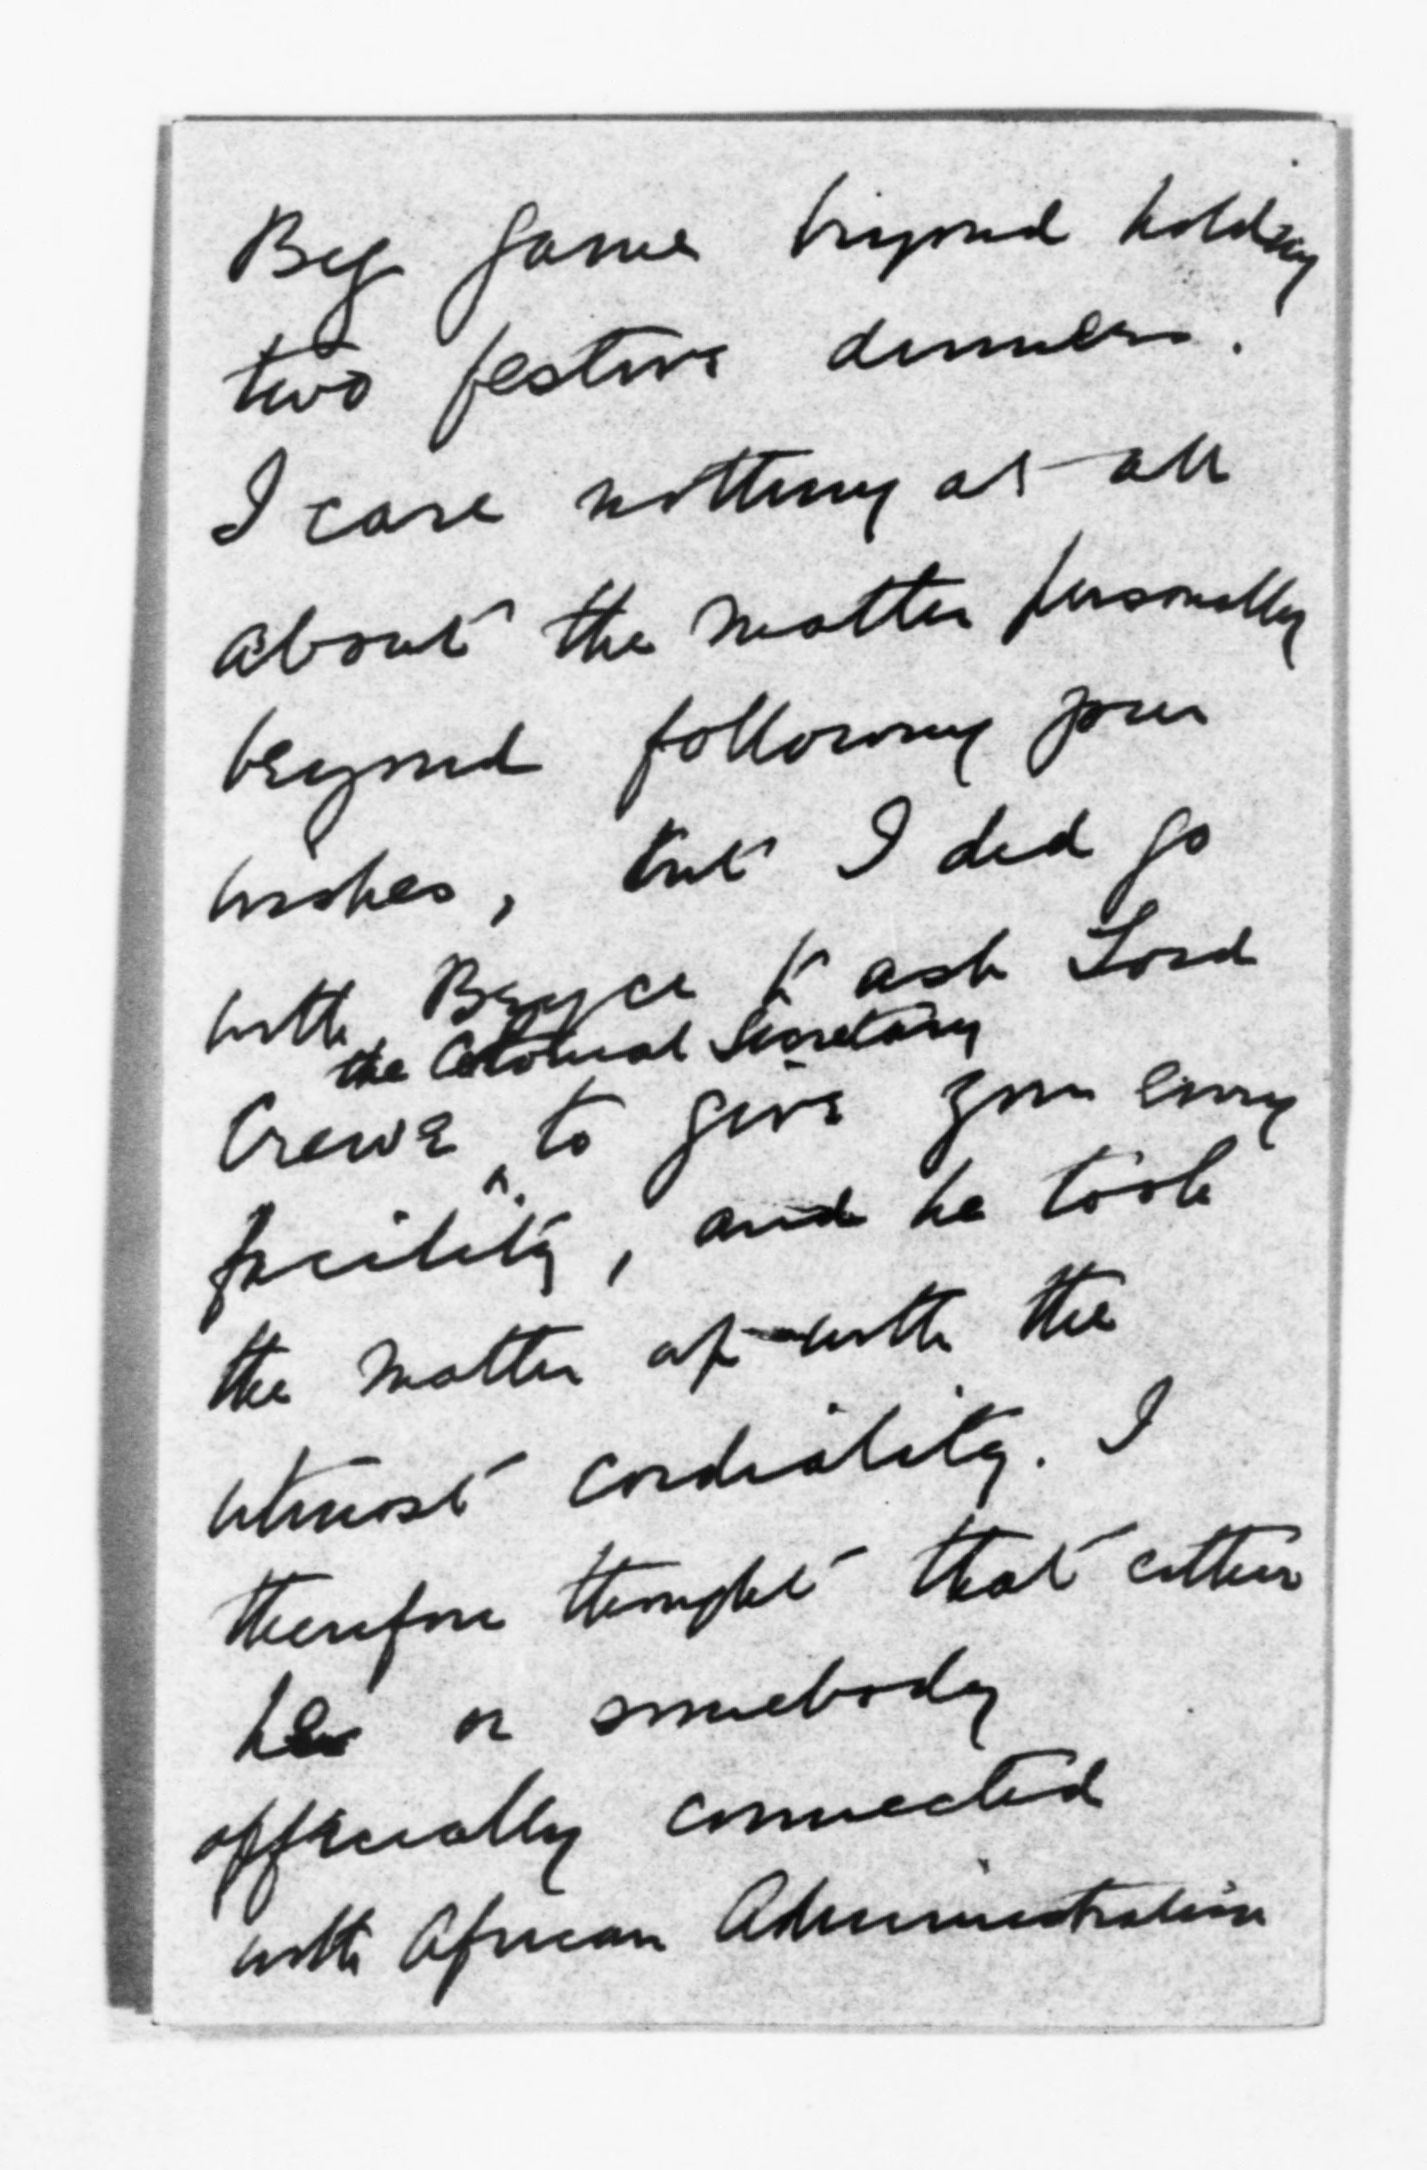 Big Game beyond holding
two festive dinners.
I care nothing at all
about the matter personally
beyond following your
wishes, but I did go
with Bryce to ask Lord
the Colonial Secretary
Crewe ^ to give you every
facility, and he took
the matter up with the
utmost cordiality. I
therefore thought that either
he or somebody
officially connected
with African Administration